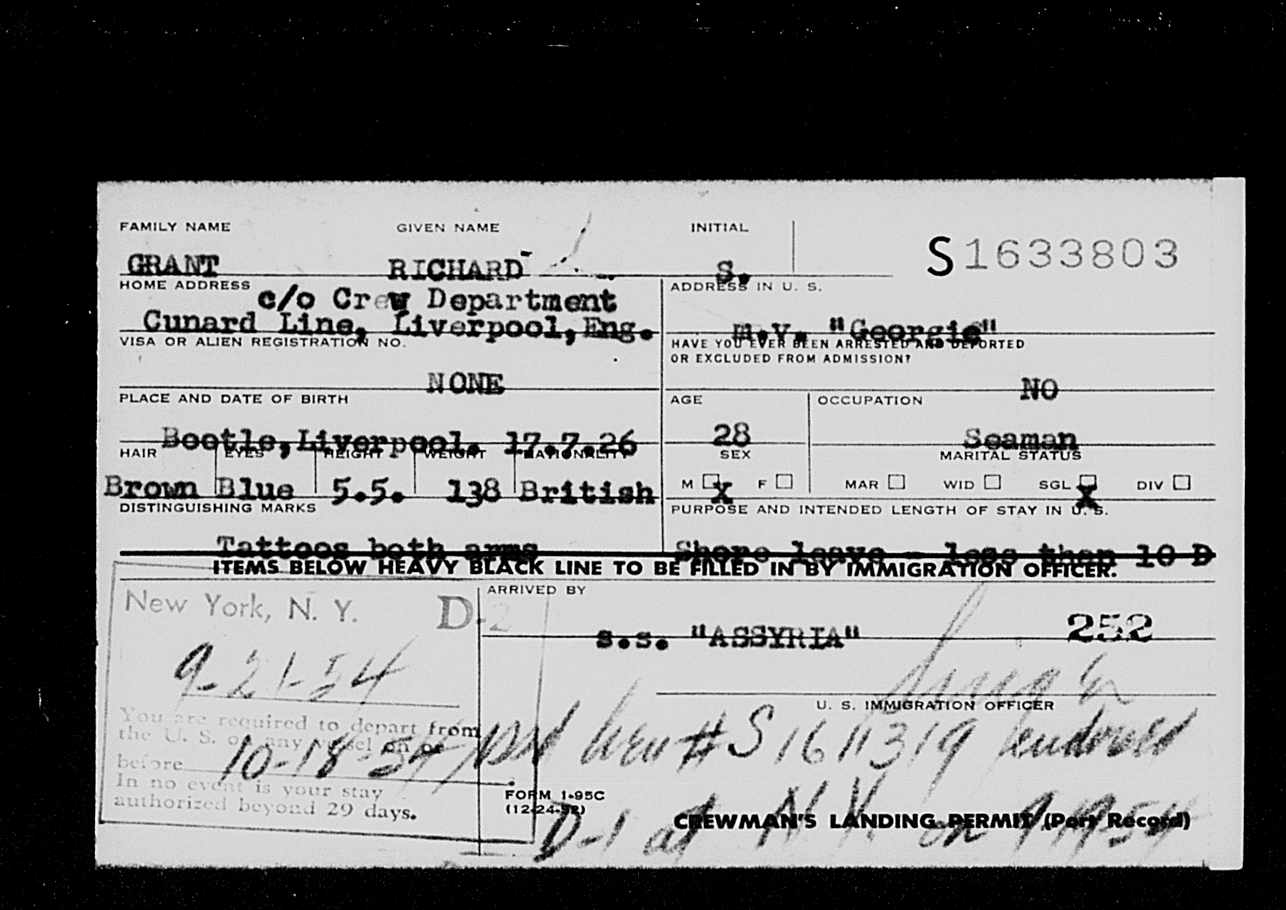 FAMILY NAME GIVEN NAME INITIAL
S1633803
GRANT RICHARD S.
HOME ADDRESS ADDRESS IN U. S.
c/o Crew Department
Cunard Line, Liverpool, Eng. m.v. "Georgic"
VISA OR ALIEN REGISTRATION NO. HAVE YOU EVER BEEN ARRESTED AND DEPORTED
OR EXCLUDED FROM ADMISSION?
NONE NO
PLACE AND DATE OF BIRTH AGE OCCUPATION
Bootle, Liverpool. 17.7.26 28 Seaman
HAIR EYES HEIGHT WEIGHT NATIONALITY SEX MARITAL STATUS
Brown Blue 5.5. 138 British M X F MAR WID SGL X DIV
DISTINGUISHING MARKS PURPOSE AND INTENDED LENGTH OF STAY IN U. S.
Tattoos both arms Shore leave - less than 10 D
ITEMS BELOW HEAVY BLACK LINE TO BE FILLED IN BY IMMIGRATION OFFICER.
New York, N. Y. D-2
ARRIVED BY
s.s. "ASSYRIA" 252
9-21-54
U. S. IMMIGRATION OFFICER
You are required to depart from
the U. S. on any vessel on or
before 10-18-54
In no event is your stay
authorized beyond 29 days.
# S1611319
D-1 at N.Y. on
FORM I-95C
(12-24-52)
CREWMAN'S LANDING PERMIT (Port Record)